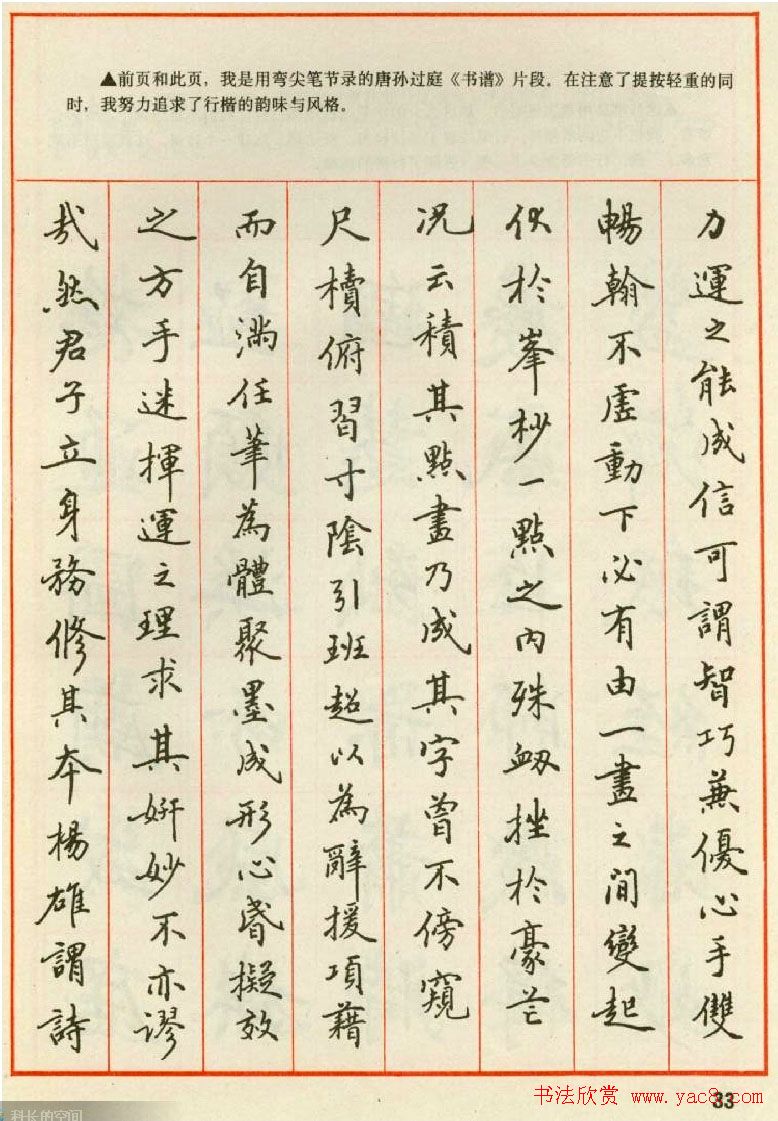 ▲前页和此页，我是用弯尖笔节录的唐孙过庭《书谱》片段。在注意了提按轻重的同
时，我努力追求了行楷的韵味与风格。
力運之能成信可謂智巧兼優心手雙
暢翰不虛動下必有由一畫之間變起
伏於峯杪一點之內殊衂挫於豪芒
况云積其點畫乃成其字曾不傍窺
尺櫝俯習寸陰引班超以為辭援項藉
而自滿任筆為體聚墨成形心昬擬效
之方手迷揮運之理求其妍妙不亦謬
哉然君子立身務修其本楊雄謂詩
书法欣赏 www.yac8.com
33
科长的空间